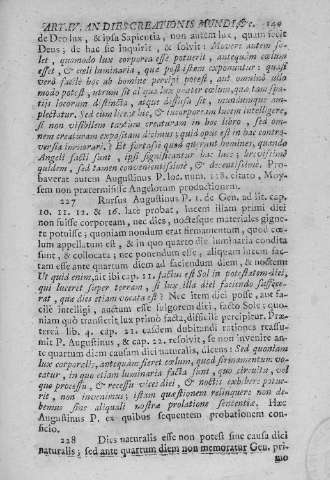 ART. IV. AN DIES CREATIONIS MUNDI &c. 149
de Deo lux, & ipsa Sapientia, non autem lux, quam fecit
Deus; de hac sic inquirit, & solvit: Movere autem so-
let, quomodo lux corporea esse potuerit, antequàm cælum
esset, & cæli luminaria, quæ post istam exponuntur: quasi
verò facile hoc ab homine percipi possit, aut omnino ullo
modo possit, utrum sit aliqua lux præter cælum, quæ tamen spa-
tijs locorum distincta, atque diffusa sit, mundumque am-
plectatur. Sed cum liceat, & incorpoream lucem intelligere,
si non visibilem tantum creaturam in hoc libro, sed om-
nem creaturam expositam dicimus; quid opus est in hac contro-
versia immorari? Et fortasse quod quærunt homines, quando
Angeli facti sunt, ipsi significantur hac luce; brevissimè
quidem, sed tamen convenientissimè, & decentissimè. Pro-
baverat autem Augustinus P. loc. num. 118. citato, Moy-
sem non prætermisisse Angelorum productionem.
227 Rursus Augustinus P. 1. de Gen. ad lit. cap.
10. 11. 12. & 16. latè probat, lucem illam primi diei
non fuisse corpoream, nec dies, noctesque materiales signe-
te potuisse; quoniam nondum erat firmamentum, quod cœ-
lum appellatum est, & in quo quarto die luminaria condita
sunt, & collocata; nec ponendum esse, aliquam lucem fac-
tam esse ante quartum diem ad faciendum diem, & noctem
Ut quid enim, ait ibi cap. 11. factus est Sol in potestatem diei,
qui luceret super terram, si lux illa diei faciendo suffece-
rat, quæ dies etiam vocata est? Nec item dici posse, aut fa-
cile intelligi, auctum esse fulgorem diei, facto Sole; quo-
niam quò transferit lux primò facta, difficile percipitur. Præ-
terea lib. 4. cap. 21. easdem dubitandi rationes reassu-
mit P. Augustinus, & cap. 22. resolvit, se non invenire an-
te quartum diem causam diei naturalis, dicens: Sed quoniam
lux corporalis, antequàm fieret cælum, quod firmamentum vo-
catur, in quo etiam luminaria facta sunt, quo circuitu, vel
quo processu, & recessu vices diei, & noctis exhibere potue-
rit, non invenimus; istam quæstionem relinquere non de-
bemus sine aliquali nostræ prolatione sententiæ. Hæc
Augustinus P. ex quibus sequentem probationem con-
ficio.
228 Dies naturalis esse non potest sine causa diei
naturalis; sed ante quartum diem non memoratur Gen. pri-
mo